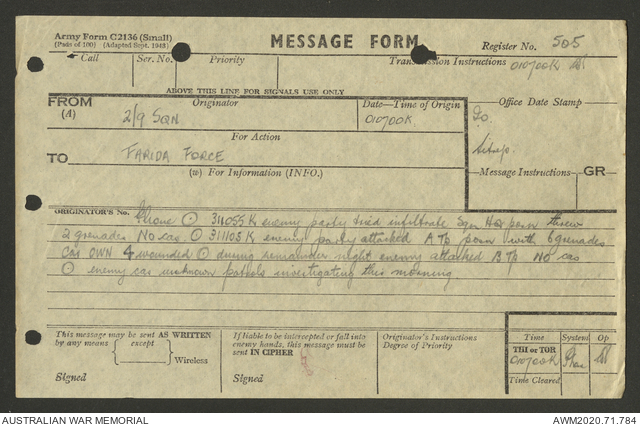 Army Form C2136 (Small)
(Pads of 100) (Adapted Sept. 1943)
MESSAGE FORM
Register No. 505
Call Ser. No. Priority Transmission Instructions 010700K
ABOVE THIS LINE FOR SIGNALS USE ONLY
FROM Originator Date—Time of Origin Office Date Stamp
(A) 2/9 SQN 010700K
For Action
TO FARIDA FORCE
Sitrep.
(w) For Information (INFO.) Message Instructions GR
ORIGINATOR'S No. Phone ⊙ 311055K enemy party tried infiltrate Sqn HQ posn threw
2 grenades No cas ⊙ 311103K enemy party attacked A Tp posn with 6 grenades
cas OWN 4 wounded ⊙ during remainder night enemy attacked B Tp No cas
⊙ enemy cas unknown patrols investigating this morning
This message may be sent AS WRITTEN
by any means except
Wireless
Signed
If liable to be intercepted or fall into
enemy hands, this message must be
sent IN CIPHER
Signed
Originator's Instructions
Degree of Priority
Time System Op
THI or TOR
010700K Phone
Time Cleared
AUSTRALIAN WAR MEMORIAL AWM2020.71.784